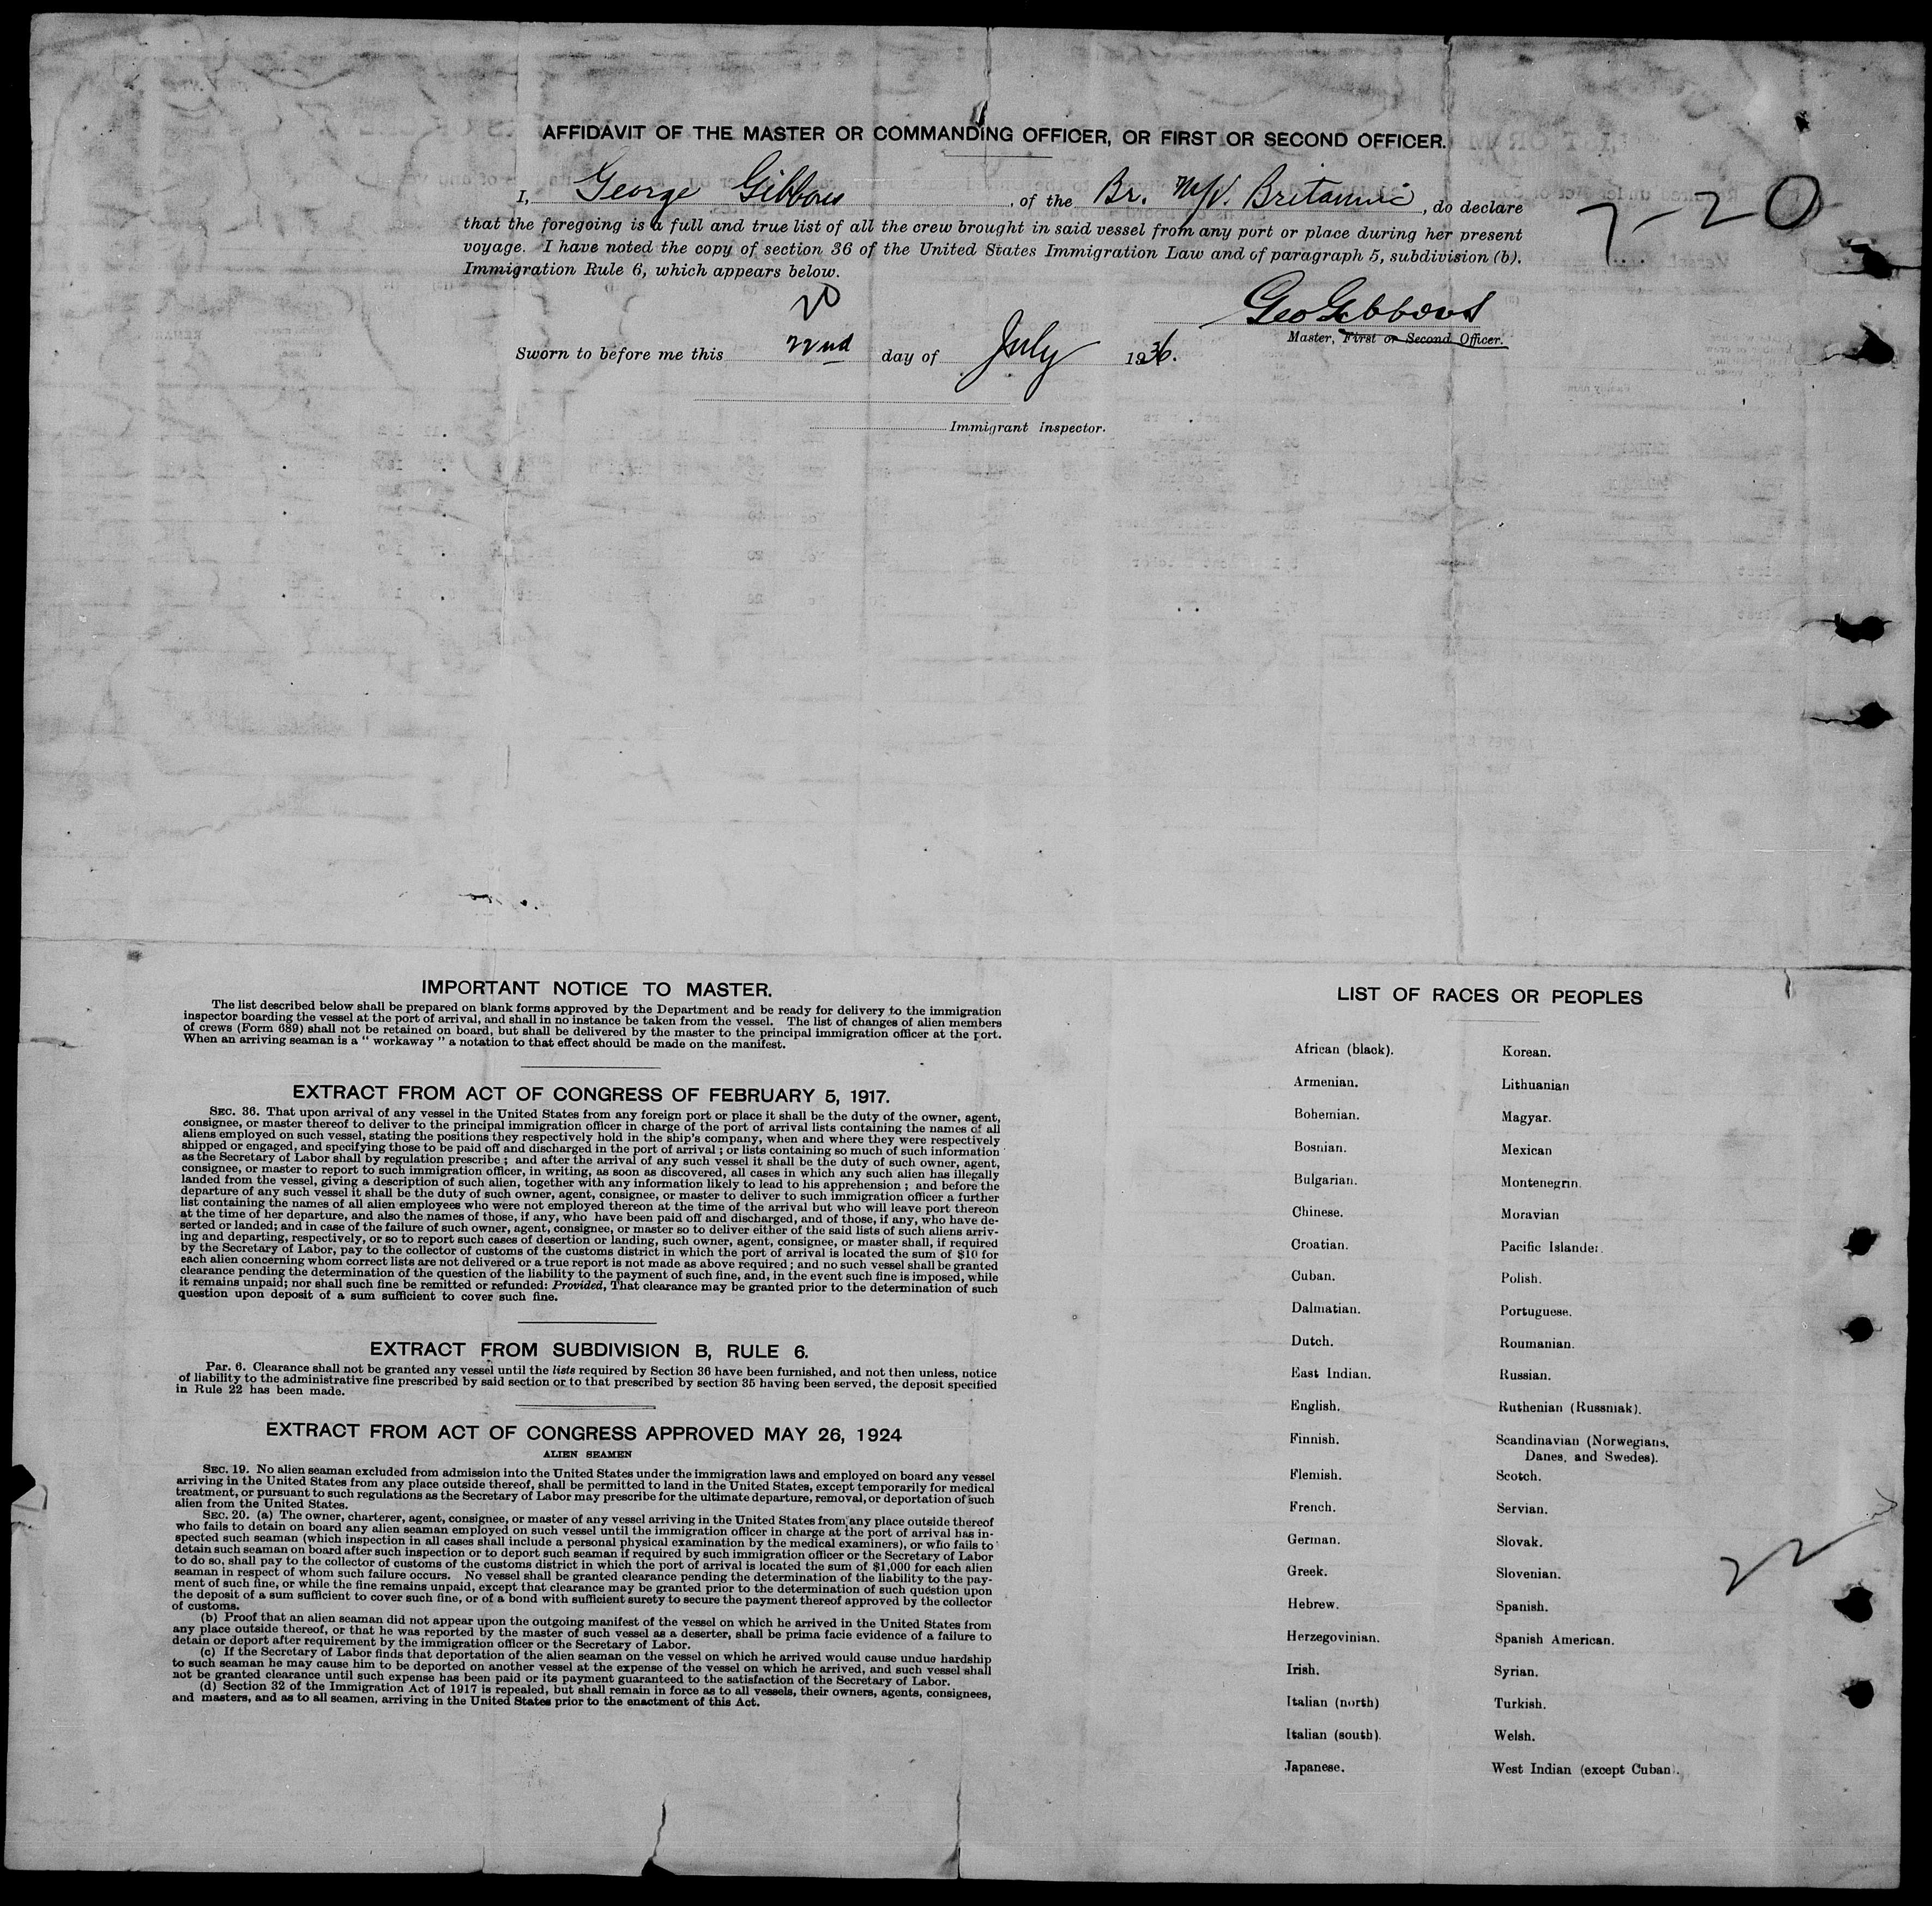 AFFIDAVIT OF THE MASTER OR COMMANDING OFFICER, OR FIRST OR SECOND OFFICER.
I, George Gibbons, of the Br. M/V. Britannic, do declare
that the foregoing is a full and true list of all the crew brought in said vessel from any port or place during her present
voyage. I have noted the copy of section 36 of the United States Immigration Law and of paragraph 5, subdivision (b).
Immigration Rule 6, which appears below.
7-20
20
Geo Gibbons
Master, First or Second Officer.
Sworn to before me this 22nd day of July 1936.
Immigrant Inspector.
IMPORTANT NOTICE TO MASTER.
The list described below shall be prepared on blank forms approved by the Department and be ready for delivery to the immigration
inspector boarding the vessel at the port of arrival, and shall in no instance be taken from the vessel. The list of changes of alien members
of crews (Form 689) shall not be retained on board, but shall be delivered by the master to the principal immigration officer at the port.
When an arriving seaman is a " workaway " a notation to that effect should be made on the manifest.
EXTRACT FROM ACT OF CONGRESS OF FEBRUARY 5, 1917.
SEC. 36. That upon arrival of any vessel in the United States from any foreign port or place it shall be the duty of the owner, agent,
consignee, or master thereof to deliver to the principal immigration officer in charge of the port of arrival lists containing the names of all
aliens employed on such vessel, stating the positions they respectively hold in the ship's company, when and where they were respectively
shipped or engaged, and specifying those to be paid off and discharged in the port of arrival ; or lists containing so much of such information
as the Secretary of Labor shall by regulation prescribe ; and after the arrival of any such vessel it shall be the duty of such owner, agent,
consignee, or master to report to such immigration officer, in writing, as soon as discovered, all cases in which any such alien has illegally
landed from the vessel, giving a description of such alien, together with any information likely to lead to his apprehension ; and before the
departure of any such vessel it shall be the duty of such owner, agent, consignee, or master to deliver to such immigration officer a further
list containing the names of all alien employees who were not employed thereon at the time of the arrival but who will leave port thereon
at the time of her departure, and also the names of those, if any, who have been paid off and discharged, and of those, if any, who have de-
serted or landed; and in case of the failure of such owner, agent, consignee, or master so to deliver either of the said lists of such aliens arriv-
ing and departing, respectively, or so to report such cases of desertion or landing, such owner, agent, consignee, or master shall, if required
by the Secretary of Labor, pay to the collector of customs of the customs district in which the port of arrival is located the sum of $10 for
each alien concerning whom correct lists are not delivered or a true report is not made as above required ; and no such vessel shall be granted
clearance pending the determination of the question of the liability to the payment of such fine, and, in the event such fine is imposed, while
it remains unpaid; nor shall such fine be remitted or refunded: Provided, That clearance may be granted prior to the determination of such
question upon deposit of a sum sufficient to cover such fine.
EXTRACT FROM SUBDIVISION B, RULE 6.
Par. 6. Clearance shall not be granted any vessel until the lists required by Section 36 have been furnished, and not then unless, notice
of liability to the administrative fine prescribed by said section or to that prescribed by section 35 having been served, the deposit specified
in Rule 22 has been made.
EXTRACT FROM ACT OF CONGRESS APPROVED MAY 26, 1924
ALIEN SEAMEN
SEC. 19. No alien seaman excluded from admission into the United States under the immigration laws and employed on board any vessel
arriving in the United States from any place outside thereof, shall be permitted to land in the United States, except temporarily for medical
treatment, or pursuant to such regulations as the Secretary of Labor may prescribe for the ultimate departure, removal, or deportation of such
alien from the United States.
SEC. 20. (a) The owner, charterer, agent, consignee, or master of any vessel arriving in the United States from any place outside thereof
who fails to detain on board any alien seaman employed on such vessel until the immigration officer in charge at the port of arrival has in-
spected such seaman (which inspection in all cases shall include a personal physical examination by the medical examiners), or who fails to
detain such seaman on board after such inspection or to deport such seaman if required by such immigration officer or the Secretary of Labor
to do so, shall pay to the collector of customs of the customs district in which the port of arrival is located the sum of $1,000 for each alien
seaman in respect of whom such failure occurs. No vessel shall be granted clearance pending the determination of the liability to the pay-
ment of such fine, or while the fine remains unpaid, except that clearance may be granted prior to the determination of such question upon
the deposit of a sum sufficient to cover such fine, or of a bond with sufficient surety to secure the payment thereof approved by the collector
of customs.
(b) Proof that an alien seaman did not appear upon the outgoing manifest of the vessel on which he arrived in the United States from
any place outside thereof, or that he was reported by the master of such vessel as a deserter, shall be prima facie evidence of a failure to
detain or deport after requirement by the immigration officer or the Secretary of Labor.
(c) If the Secretary of Labor finds that deportation of the alien seaman on the vessel on which he arrived would cause undue hardship
to such seaman he may cause him to be deported on another vessel at the expense of the vessel on which he arrived, and such vessel shall
not be granted clearance until such expense has been paid or its payment guaranteed to the satisfaction of the Secretary of Labor.
(d) Section 32 of the Immigration Act of 1917 is repealed, but shall remain in force as to all vessels, their owners, agents, consignees,
and masters, and as to all seamen, arriving in the United States prior to the enactment of this Act.
LIST OF RACES OR PEOPLES
African (black).
Armenian.
Bohemian.
Bosnian.
Bulgarian.
Chinese.
Croatian.
Cuban.
Dalmatian.
Dutch.
East Indian.
English.
Finnish.
Flemish.
French.
German.
Greek.
Hebrew.
Herzegovinian.
Irish.
Italian (north)
Italian (south).
Japanese.
Korean.
Lithuanian
Magyar.
Mexican
Montenegrin.
Moravian
Pacific Islander.
Polish.
Portuguese.
Roumanian.
Russian.
Ruthenian (Russniak).
Scandinavian (Norwegians,
Danes, and Swedes).
Scotch.
Servian.
Slovak.
Slovenian.
Spanish.
Spanish American.
Syrian.
Turkish.
Welsh.
West Indian (except Cuban).
22